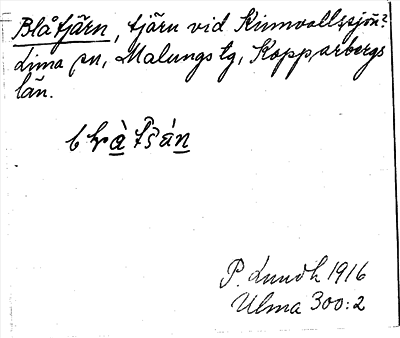 Blåtjärn, tjärn vid Kinnvallssjön?
Lima sn, Malungs tg, Kopparbergs
län.
P. Lundh 1916
Ulma 300:2